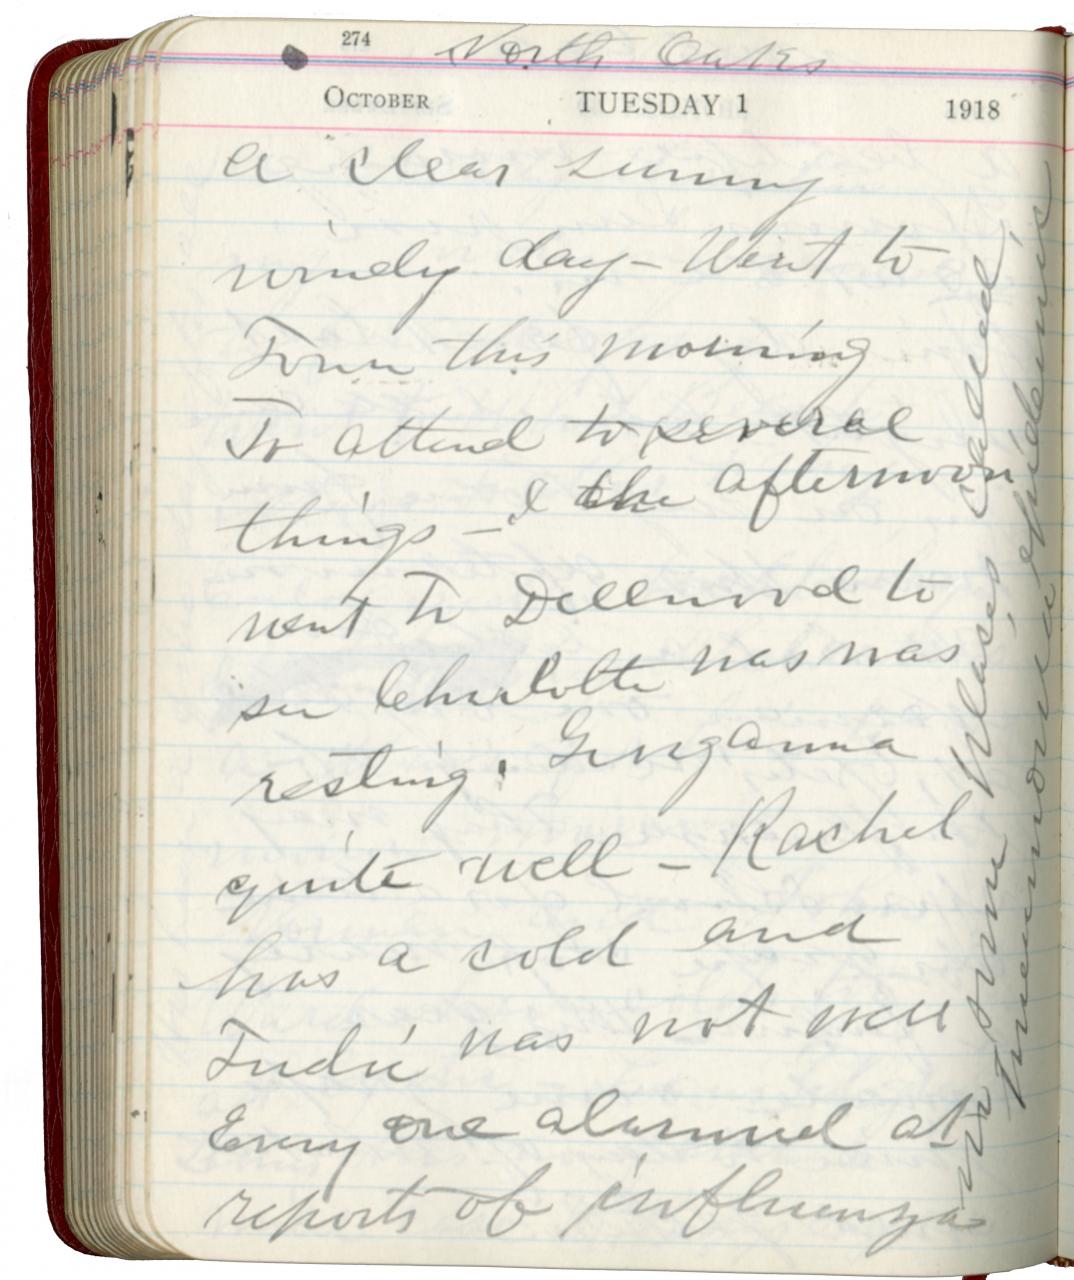 274 North Oaks
OCTOBER TUESDAY 1 1918
A clear sunny
windy day – Went to
Town this morning
To attend to several
things – I the afternoon
went to Dellwood to
see Charlotte was was
resting.
quite well – Rachel
has a cold and
was not well
Every one alarmed at
reports of influenza
in some places called
pneumonia epidemic